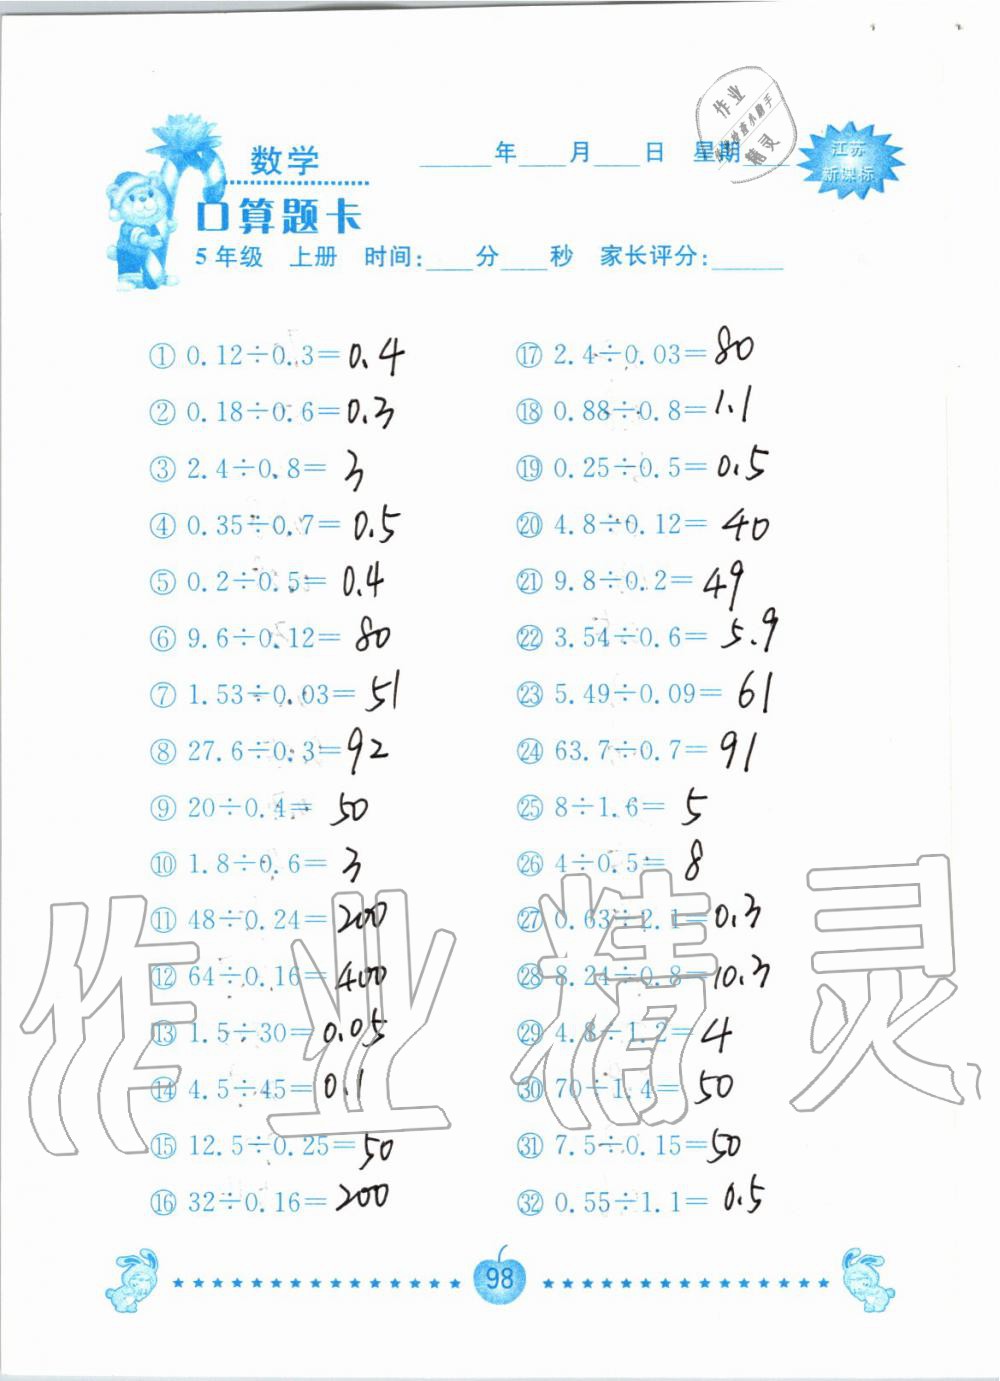 数学
____年____月____日 星期____
江苏
新课标
口算题卡
5年级 上册 时间:____分____秒 家长评分:______
① 0.12÷0.3=0.4
② 0.18÷0.6=0.3
③ 2.4÷0.8=3
④ 0.35÷0.7=0.5
⑤ 0.2÷0.5=0.4
⑥ 9.6÷0.12=80
⑦ 1.53÷0.03=51
⑧ 27.6÷0.3=92
⑨ 20÷0.4=50
⑩ 1.8÷0.6=3
⑪ 48÷0.24=200
⑫ 64÷0.16=400
⑬ 1.5÷30=0.05
⑭ 4.5÷45=0.1
⑮ 12.5÷0.25=50
⑯ 32÷0.16=200
⑰ 2.4÷0.03=80
⑱ 0.88÷0.8=1.1
⑲ 0.25÷0.5=0.5
⑳ 4.8÷0.12=40
㉑ 9.8÷0.2=49
㉒ 3.54÷0.6=5.9
㉓ 5.49÷0.09=61
㉔ 63.7÷0.7=91
㉕ 8÷1.6=5
㉖ 4÷0.5=8
㉗ 0.63÷2.1=0.3
㉘ 8.24÷0.8=10.3
㉙ 4.8÷1.2=4
㉚ 70÷1.4=50
㉛ 7.5÷0.15=50
㉜ 0.55÷1.1=0.5
作业精灵
98
作业
精灵